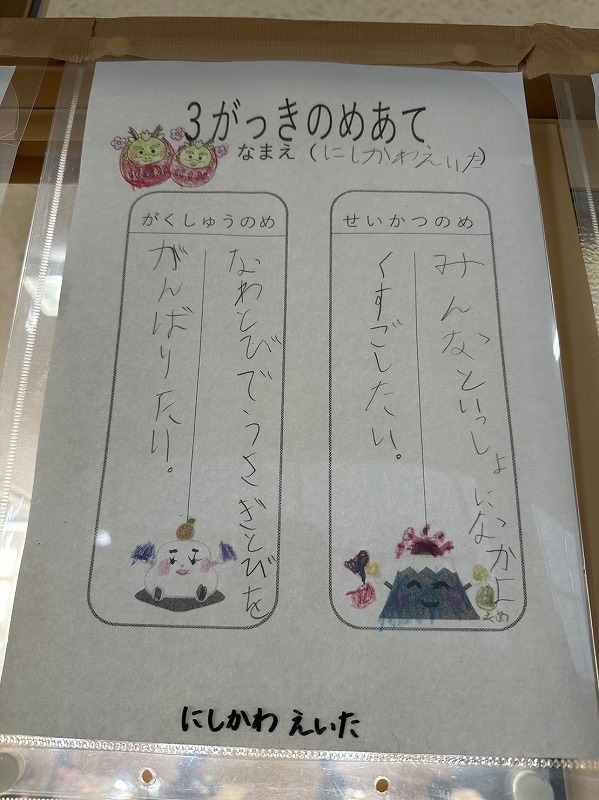 3がっきのめあて
なまえ(にしかわえいた)
せいかつのめ
みんなといっしょになかよ
くすごしたい。
がくしゅうのめ
なわとびでうさぎとびを
がんばりたい。
にしかわ えいた